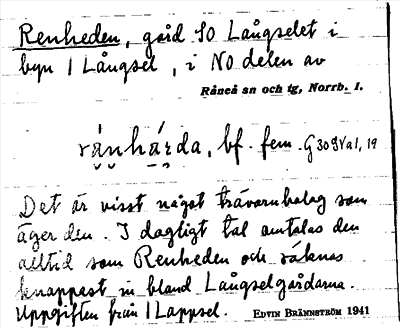 Renheden, gård SO Långselet i
byn 1 Långsel, i NO delen av
Råneå sn och tg, Norrb. l.
rä̬nhá̬rda, bf. fem. G 3091/a1, 19
Det är visst något trävarubolag som
äger den. I dagligt tal omtalas den
alltid som Renheden och räknas
knappast in bland Långselgårdarna.
Uppgiften från 1 Lappsel. EDVIN BRÄNNSTRÖM 1941